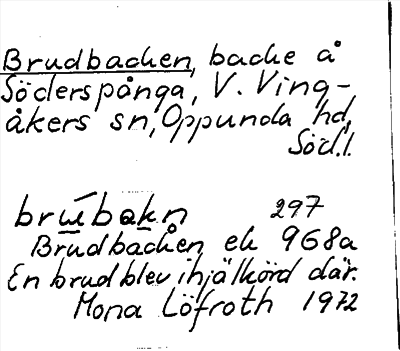 Brudbacken, backe å
Söderspånga, V. Ving-
åkers sn, Oppunda hd,
Söd.l.
brūbakn 297
Brudbacken ek 968a
En brud blev ihjälkörd där.
Mona Löfroth 1972